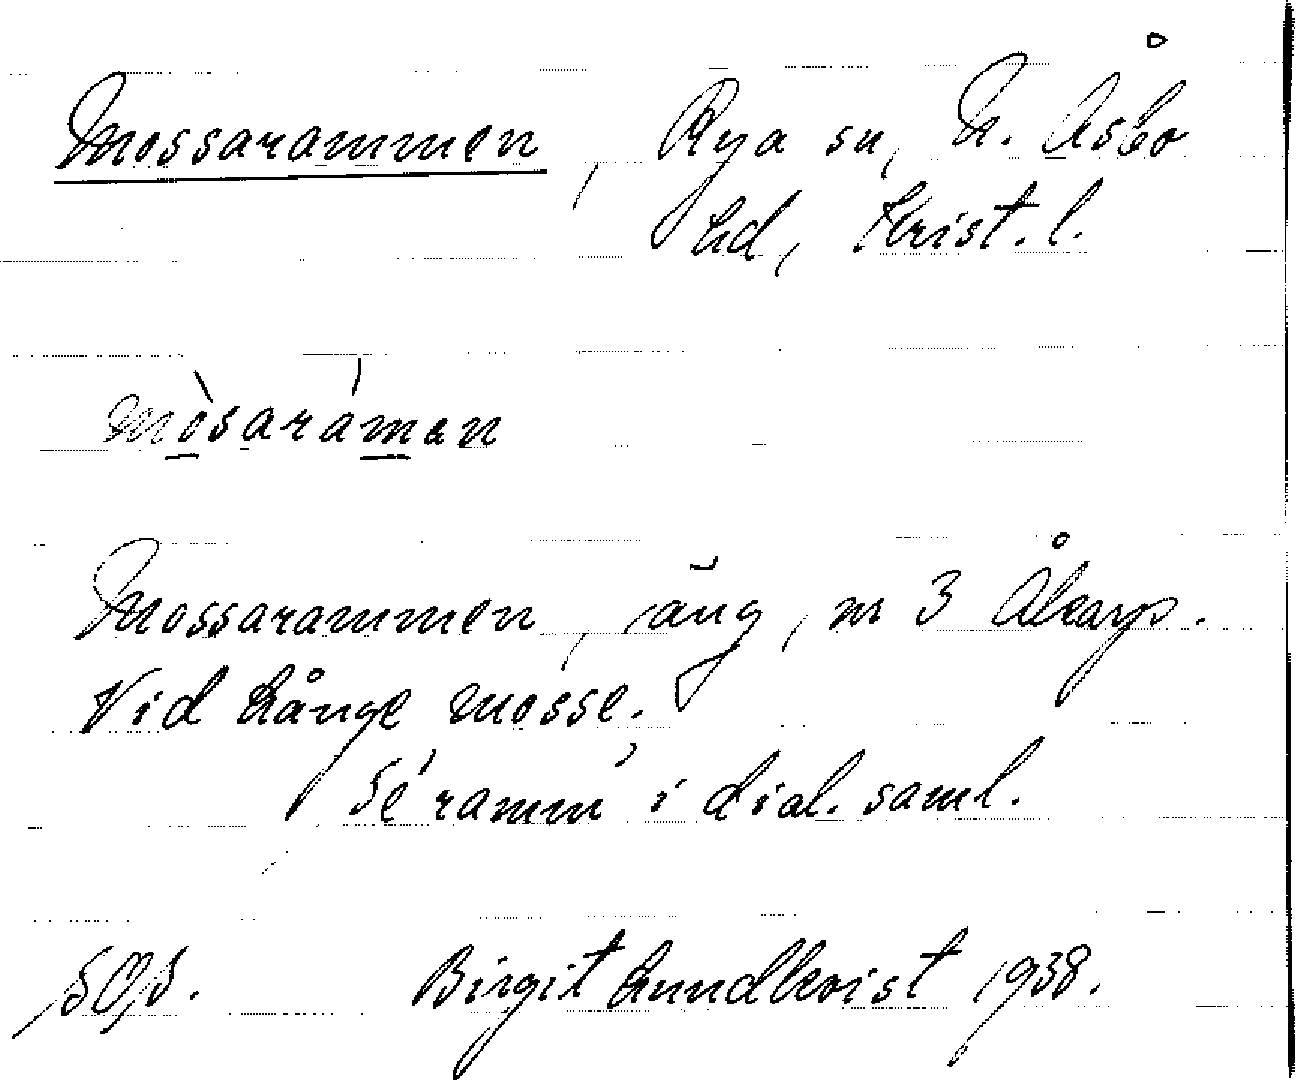 Mossarammen, Rya sn, N. Åsbo
hd, Krist. l.
mòsaráman
Mossarammen, äng, nr 3 Åkarp.
Vid Långe mosse.
Se 'ramm' i dial. saml.
Birgit Lundkvist 1938.